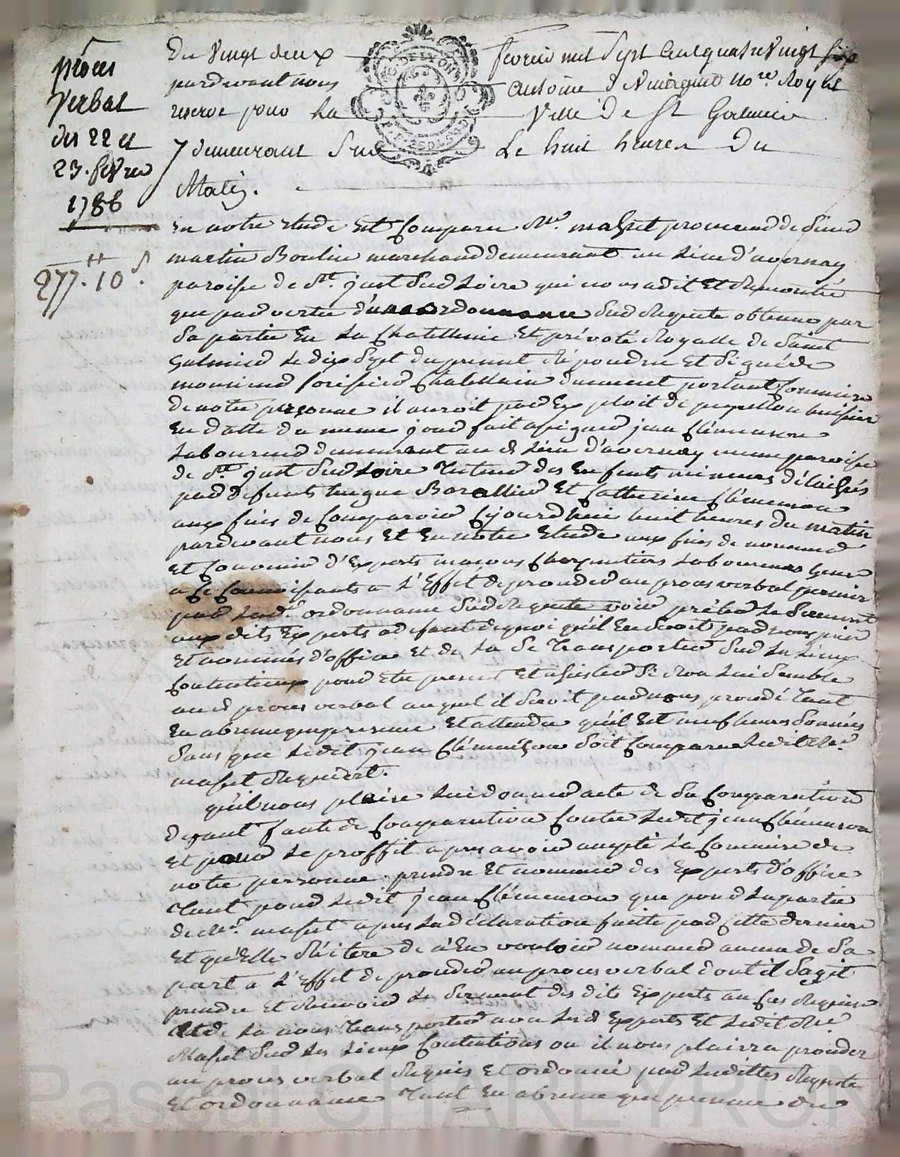 procès
verbal
des 22 et
23. fevrier
1786
277.# 10.s
Du vingt deux fevrier mil sept cent quatre vingt six
pardevant nous Antoine D note Royal
reservé pour la Ville de St Galmier
y demeurant sur Le huit heures du
Matin.
En notre Etude Est Comparu Me. masset procureur de Sieur
martin Boulin marchand demeurant au Lieu d'avernay
paroisse de St. just sur Loire qui nous a dit Et Remontré
que par vertu d'une ordonnance sur Requete obtenue par
Sa partie En La Chatellenie Et prévoté Royalle de Saint
Galmier Le dix Sept du present Repondue Et Signée de
monsieur Chatelain Portant Commission
de notre personne il auroit par Exploit de huissier
En datte du meme jour fait assigner jean Clémenson
Laboureur demeurant au dt Lieu d'avernay meme paroisse
de St. just Sur Loire Tuteur des Enfants mineurs délaissés
par defunts Barallier Et Catherine Clémenson
aux fins de Comparoir Cejourd'hui huit heures du matin
pardevant nous Et En notre Etude aux fins de nommer
Et Convenir d'Experts masons Charpentiers Laboureurs gens
a Ce Connoissants a L'Effet de proceder au proces verbal permis
par Ladte. ordonnance Sur Requete voir préter Le Serment
aux dits Experts a defaut de quoi qu'il En Seroit par nous pris
Et nommés d'office Et de La Se Transporter Sur Les Lieux
Contentieux pour Etre present Et assister Si bon Lui Semble
au dt proces verbal auquel il Seroit par nous procedé Tant
En absence qu'en presence Et attendu qu'il Est neuf heures Sonnées
Sans que Ledit jean Clémenson Soit Comparu Ledit Me.
masset Requiert.
qu'il nous plaise Lui donner acte de Sa Comparution
deffaut faute de Comparution Contre Ledit jean Clémenson
Et pour Le proffit apres avoir accepté La Commission de
notre personne, prendre Et nommer des Experts d'office
Tant pour Ledit jean Clémenson que pour La partie
de Me. masset apres La déclaration faitte par Cette derniere
Et qu'elle Réitere de n'En vouloir nommer aucun de Sa
part a L'Effet de proceder au proces verbal dont il Sagit
prendre Et Recevoir Le Serment des dits Experts au Cas Requis
Et de La nous Transporter avec Lesd Experts Et Ledit Me
Masset Sur Les Lieux Contentieux ou il nous plairra proceder
au proces verbal Requis Et ordonné par Lesdittes Requete
Et ordonnance Tant En absence que presence du
Pascal CHARLEYRON